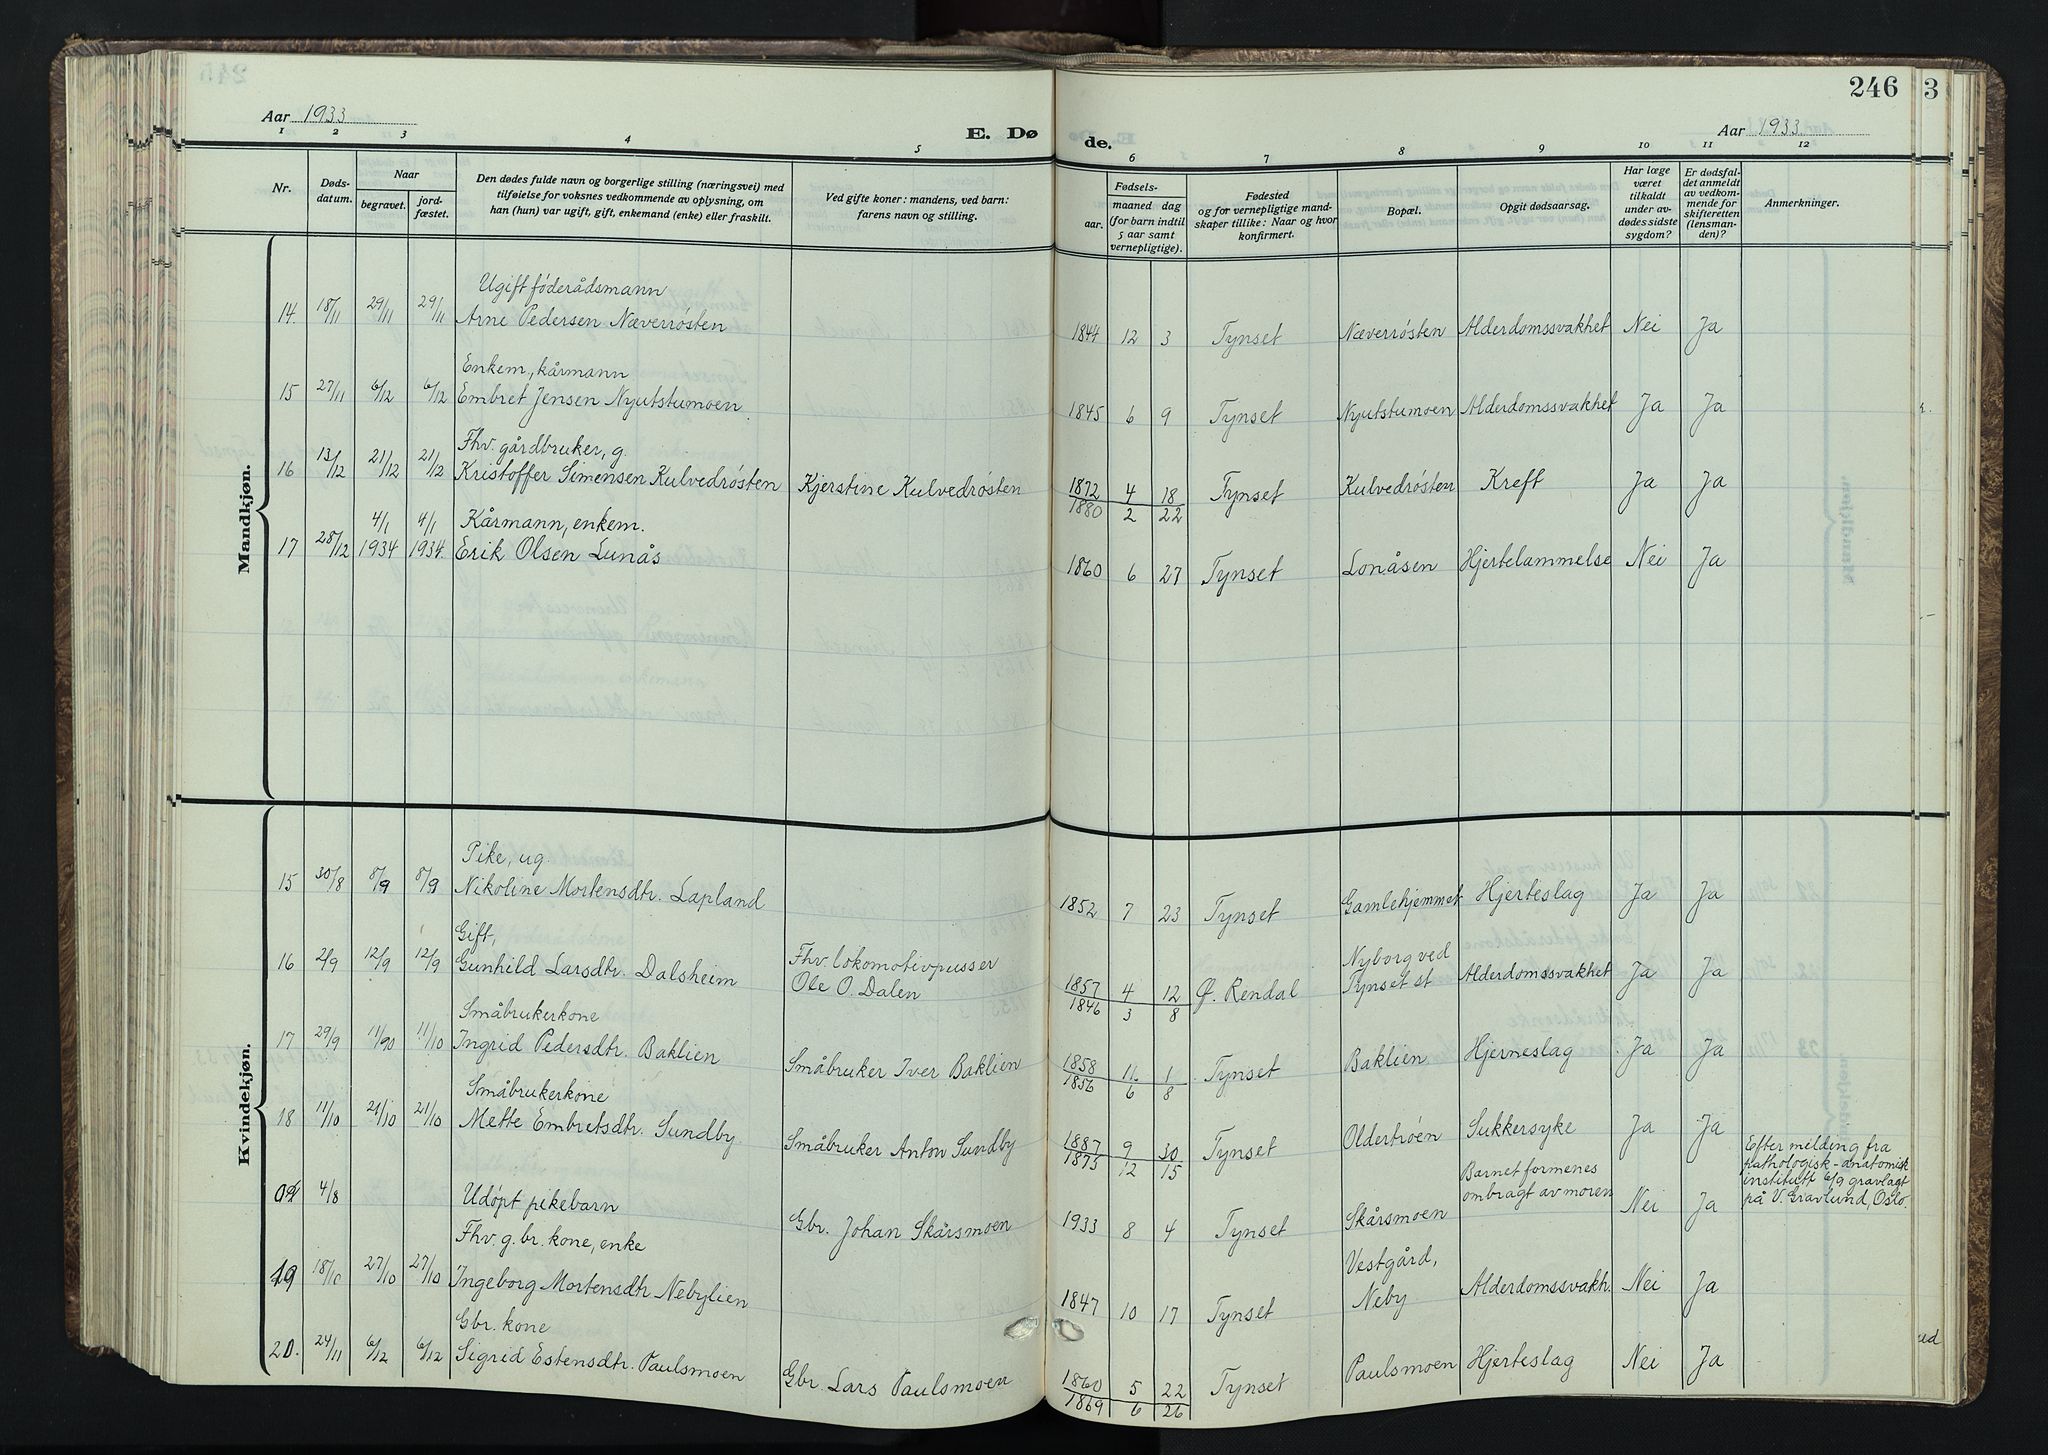 246
3
Aar 1933
E. Dø
de.
Aar 1933
1 2 3 4 5 6 7 8 9 10 11 12
Nr.
Døds-
datum.
Naar
begravet.
jord-
fæstet.
Den dødes fulde navn og borgerlige stilling (næringsvei) med
tilføielse for voksnes vedkommende av oplysning, om
han (hun) var ugift, gift, enkemand (enke) eller fraskilt.
Ved gifte koner: mandens, ved barn:
farens navn og stilling.
Fødsels-
aar.
maaned dag
(for barn indtil
5 aar samt
vernepligtige).
Fødested
og for vernepligtige mand-
skaper tillike: Naar og hvor
konfirmert.
Bopæl.
Opgit dødsaarsag.
Har læge
været
tilkaldt
under av-
dødes sidste
sygdom?
Er dødsfal-
det anmeldt
av vedkom-
mende for
skifteretten
(lensman-
den)?
Anmerkninger.
Mandkjøn.
Ugift föderådsmann
14. 18/11 29/11 29/11 Arne Pedersen Næverrösten 1844 12 3 Tynset Næverrösten Alderdomssvakhet Nei Ja
Enkem, kårmann
15 27/11 6/12 6/12 Embret Jensen Nyutstumoen 1845 6 9 Tynset Nyutstumoen Alderdomssvakhet Ja Ja
Fhv. gårdbruker, g.
16 13/12 21/12 21/12 Kristoffer Simensen Kulvedrösten Kjerstine Kulvedrösten 1872 4 18 Tynset Kulvedrösten Kreft Ja Ja
1880 2 22
4/1 4/1 Kårmann, enkem.
17 28/12 1934 1934. Erik Olsen Lunås 1860 6 27 Tynset Lonåsen Hjertelammelse Nei Ja
Kvindekjøn.
Pike, ug.
15 30/8 8/9 8/9 Nikoline Mortensdtr. Lapland 1852 7 23 Tynset Gamlehjemmet Hjerteslag Ja Ja
Gift, Nyborg ved
16 2/9 12/9 12/9 Gunhild Larsdtr. Dalsheim Fhv. lokomotivpusser 1857 4 12 Ø. Rendal Tynset st Alderdomssvakhet Ja Ja
Ole O. Dalen 1846 3 8
Småbrukerkone
17 29/9 11/90 11/10 Ingrid Pedersdtr. Baklien Småbruker Iver Baklien 1858 11 1 Tynset Baklien Hjerneslag Ja Ja
1856 6 8
Småbrukerkone
18 11/10 21/10 21/10 Mette Embretsdtr. Sundby. Småbruker Anton Sundby 1887 9 30 Tynset Oldertröen Sukkersyke Ja Ja
1875 12 15
4/8 Udöpt pikebarn Gbr. Johan Skårsmoen 1933 8 4 Tynset Skårsmoen Barnet formenes
ombragt av moren Nei Ja
Efter melding fra
pathologisk-anatomisk
institutt 6/9 gravlagt
på V. Gravlund, Oslo.
Fhv. g. br. kone, enke Vestgård,
19 18/10 27/10 27/10 Ingeborg Mortensdtr Nebylien 1847 10 17 Tynset Neby Alderdomssvakh. Nei Ja
Gbr. kone
20. 24/11 6/12 6/12 Sigrid Estensdtr. Paulsmoen Gbr. Lars Paulsmoen 1860 5 22 Tynset Paulsmoen Hjerteslag Nei Ja
1869 6 26